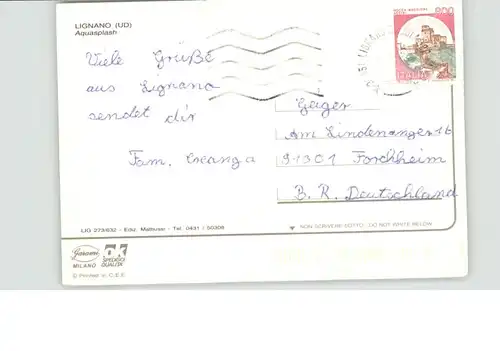 LIGNANO (UD)
Aquasplash
Viele Grüße
aus Lignano
sendet dir
Fam. Creanga
800
ITALIA
Geiger
Am Lindenanger 16
91301 Forchheim
B. R. Deutschland
LIG 273/632 - Ediz. Mattiussi - Tel. 0431 / 50309
NON SCRIVERE SOTTO - DO NOT WRITE BELOW
Garami
MILANO
SPEKROS
QUALITÄT
© Printed in C.E.E.